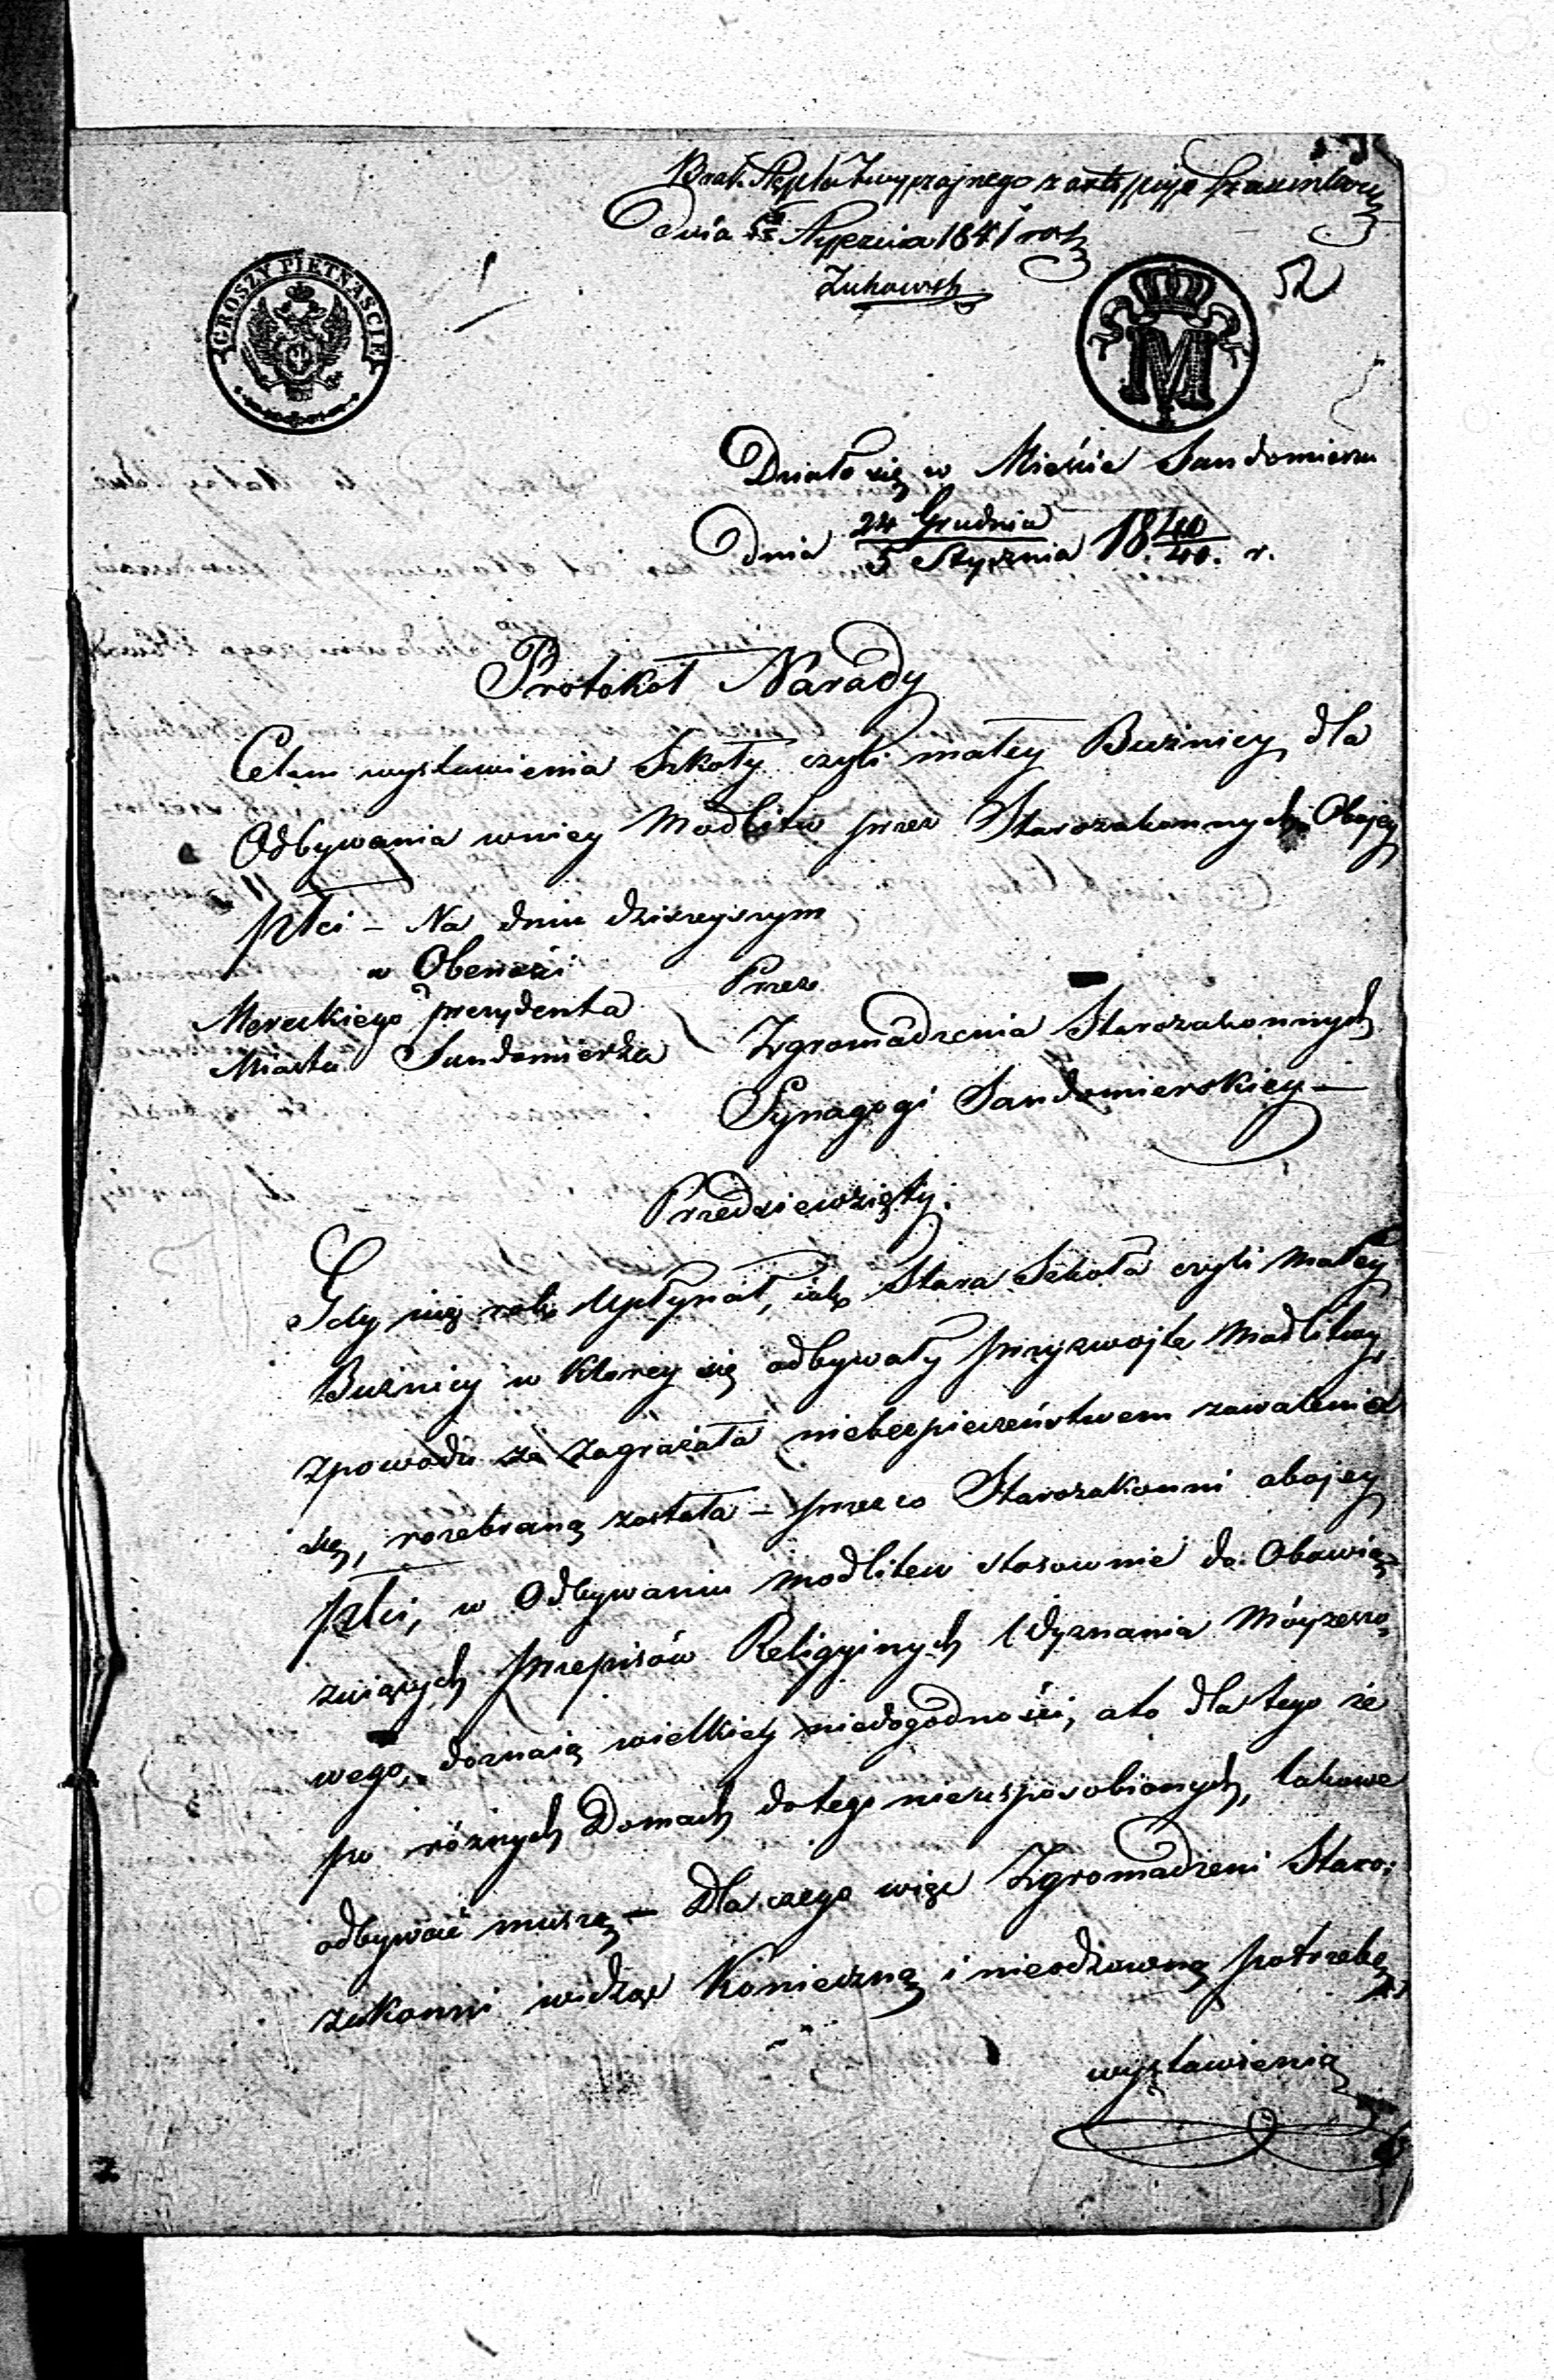 Brak Stępla zwyczajnego zastępuje
Dnia Stycznia 1841 roku
Żukowsk
GROSZY PIĘTNAŚCIE
M
52
Działo się w Mieście Sandomierzu
dnia 24 Grudnia / 5 Stycznia 18 40/40. r.
Protokół Narady
Celem wystawienia Szkoły czyli małey Bużnicy dla
Odbywania wniey Modlitw przez Starozakonnych Obojey
płci – Na dniu dzisieyszym
w Obecności
Mereckiego prezydenta
Miasta Sandomierza
Przez
Zgromadzenia Starozakonnych
Synagogi Sandomierskiey –
Przedsiewzięty.
Gdy iuż rok upłynął, iak Stara Szkoła czyli małey
Bużnicy w Ktorey się odbywały przyzwojte Modlitwy,
zpowodu że zagrażała niebezpieczeństwem zawalenia
się, rozebraną została – przez co Starozakonni obojey
płci, w Odbywaniu modlitew stosownie do Obowią-
zuiących przepisów Religyinych Wyznania Móyżeszo-
wego, doznaią wielkiey niedogodności, ato dla tego że
po różnych Domach dotego nieusposobionych, takowe
odbywać muszą – Dla czego więc Zgromadzeni Staro-
zakonni widząc Konieczną i nieodzowną potrzebę
wystawienia